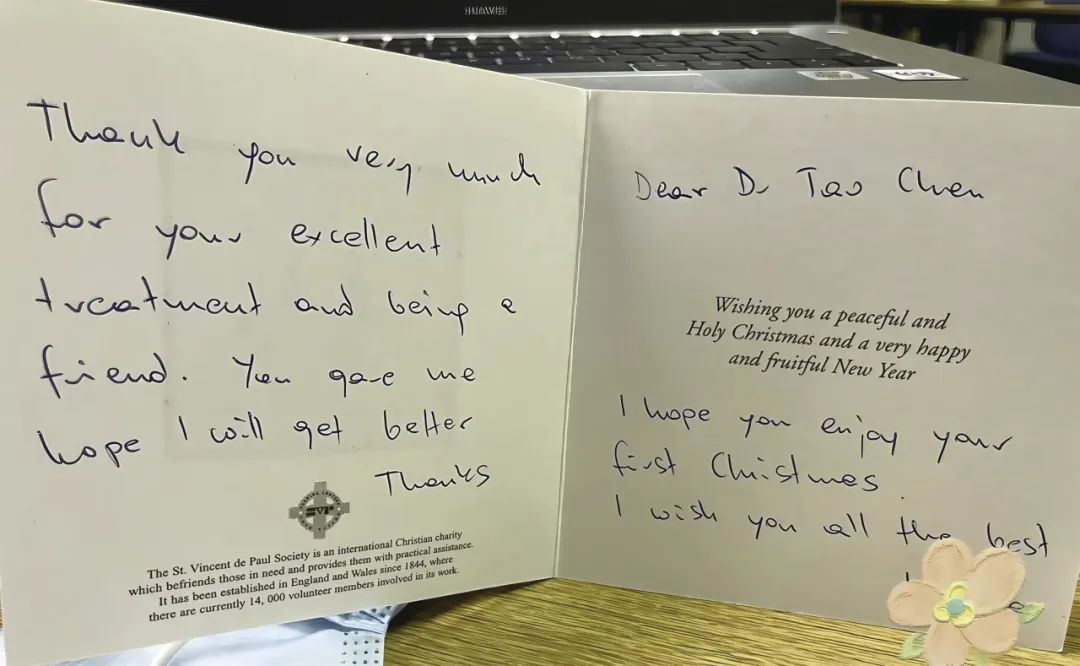 HUAWEI
Thank you very much
for your excellent
treatment and being a
friend. You gave me
hope I will get better
Thanks
SVP
The St. Vincent de Paul Society is an international Christian charity
which befriends those in need and provides them with practical assistance.
It has been established in England and Wales since 1844, where
there are currently 14, 000 volunteer members involved in its work.
Dear Dr Tao Chen
Wishing you a peaceful and
Holy Christmas and a very happy
and fruitful New Year
I hope you enjoy your
first Christmas.
I wish you all the best